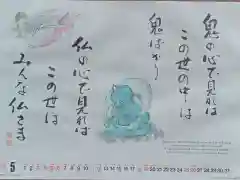 鬼の心で見れば
この世の中は
鬼ばかり
仏の心で見れば
この世は
みんな仏さま
5